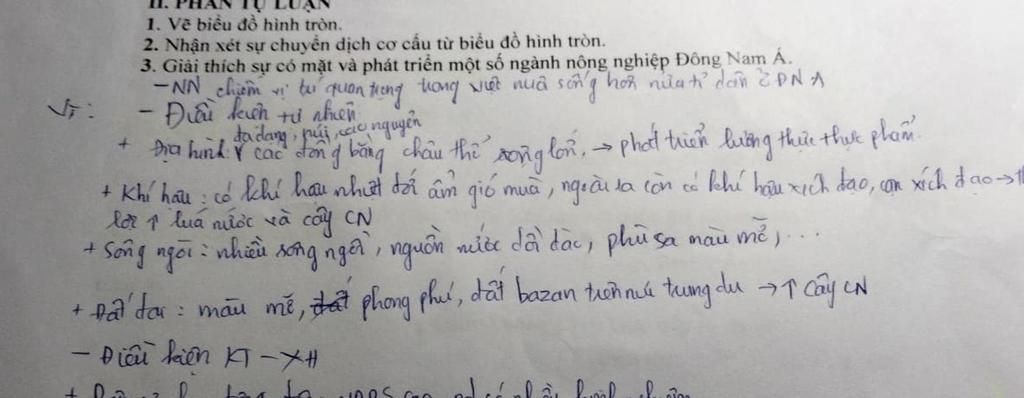 II. PHẦN TỰ LUẬN
1. Vẽ biểu đồ hình tròn.
2. Nhận xét sự chuyển dịch cơ cấu từ biểu đồ hình tròn.
3. Giải thích sự có mặt và phát triển một số ngành nông nghiệp Đông Nam Á.
- NN chiếm vị trí quan trọng trong việc nuôi sống hơn nửa tỉ dân ĐNA
VT :
- Điều kiện tự nhiên
đa dạng, núi, cao nguyên
+ Địa hình : các đồng bằng châu thổ sông lớn, → phát triển lương thực thực phẩm.
+ Khí hậu : có khí hậu nhiệt đới ẩm gió mùa, ngoài ra còn có khí hậu xích đạo, cận xích đạo →
lợi ↑ luá nước và cây CN
+ Sông ngòi : nhiều sông ngòi, nguồn nước dồi dào, phù sa màu mỡ, ...
+ Đất đai : màu mỡ, phong phú, đất bazan trên núi trung du → ↑ cây CN
- Điều kiện KT - XH